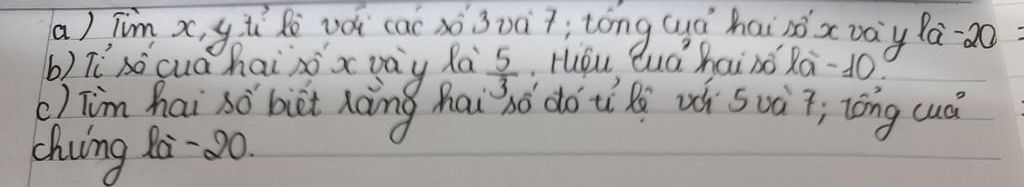 a) Tìm x, y tỉ lệ với các số 3 và 7; tổng của hai số x và y là -20
b) Tỉ số của hai số x và y là 5/3. Hiệu của hai số là -10.
c) Tìm hai số biết rằng hai số đó tỉ lệ với 5 và 7; tổng của
chúng là -20.